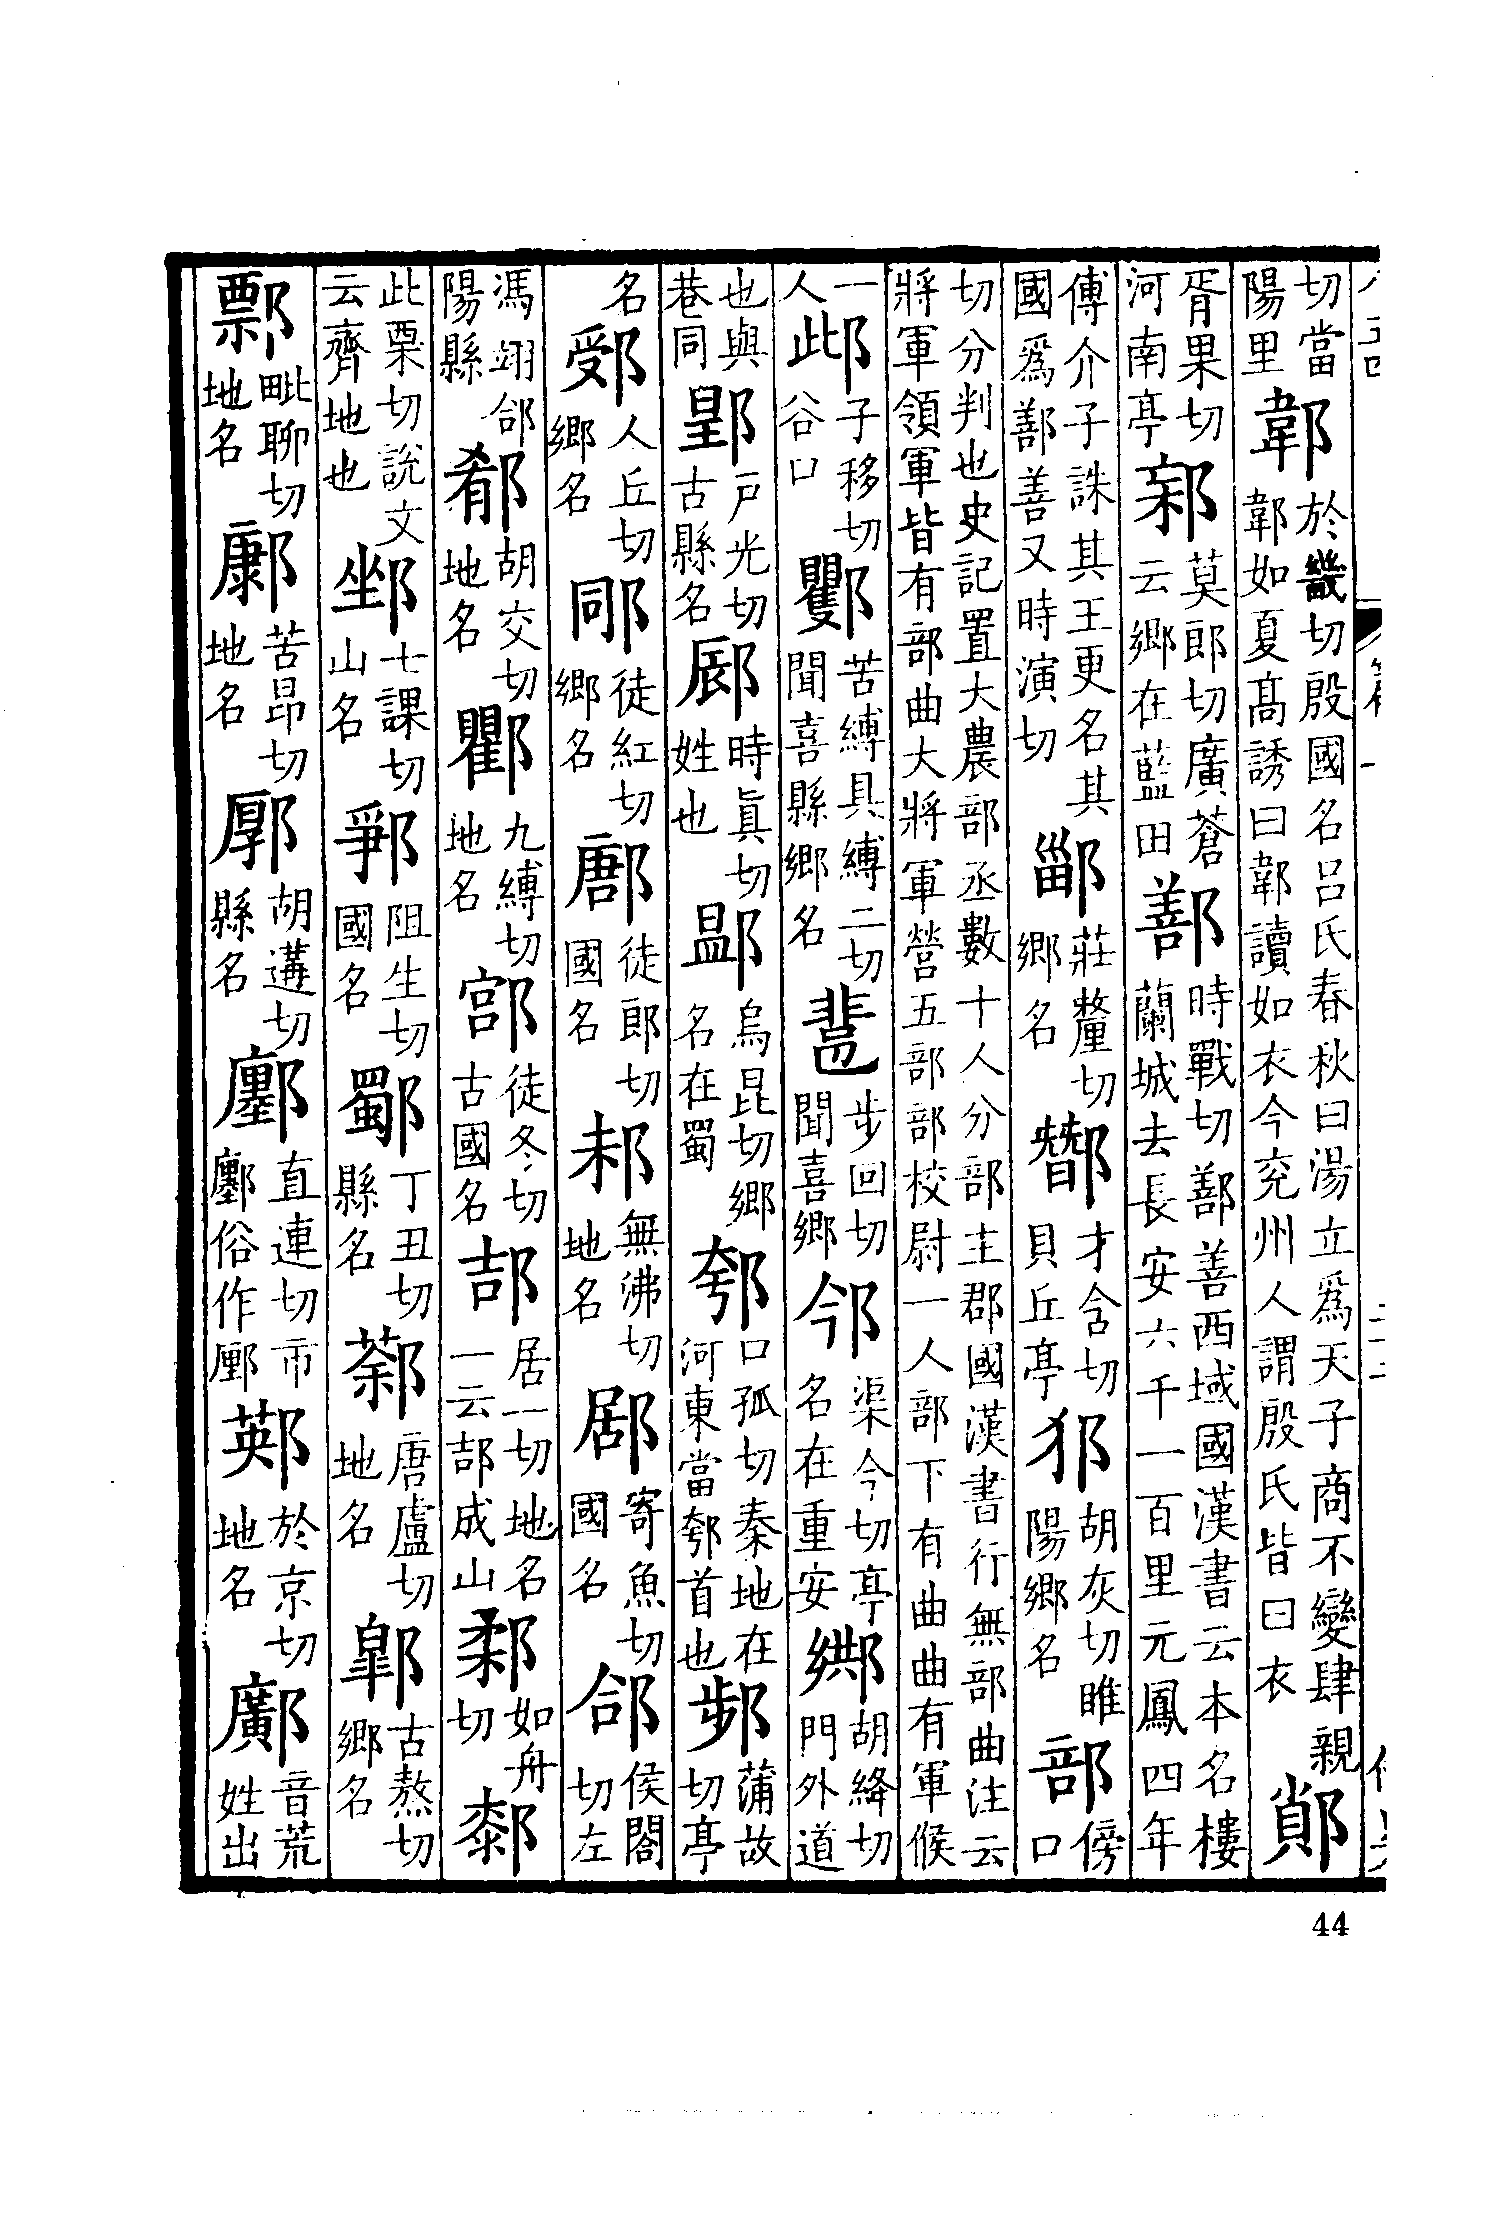 切當陽里郼於畿切殷國名呂氏春秋曰湯立爲天子商不變肆親郼如夏高誘曰郼讀如衣今兖州人謂殷氏皆曰衣
胥果切河南亭莫郎切廣蒼云鄉在藍田鄯時戰切鄯善西域國漢書云本名樓蘭城去長安六千一百里元鳳四年
傅介子誅其王更名其國爲鄯善又時演切莊釐切鄉名才含切貝丘亭胡灰切睢陽鄉名部傍口
切分判也史記置大農部丞數十人分部主郡國漢書行無部曲注云將軍領軍皆有部曲大將軍營五部部校尉一人部下有曲曲有軍候
一人子移切谷口苦縛具縛二切聞喜縣鄉名步回切聞喜鄉渠今切亭名在重安胡絳切門外道
也與巷同鄓戶光切古縣名時眞切姓也烏昆切鄉名在蜀郀口孤切秦地在河東當郀首也蒲故切亭
名人丘切鄉名徒紅切鄉名鄌徒郎切國名無沸切地名寄魚切國名郃侯閤切左
馮翊郃陽縣郩胡交切地名九縛切地名徒冬切古國名郆居一切地名一云郆成山如舟切
此栗切說文云齊地也七課切山名阻生切國名丁丑切縣名唐盧切地名古熬切鄉名
毗聊切地名苦昂切地名胡遘切縣名鄽直連切市鄽俗作於京切地名鄺音荒姓出
44